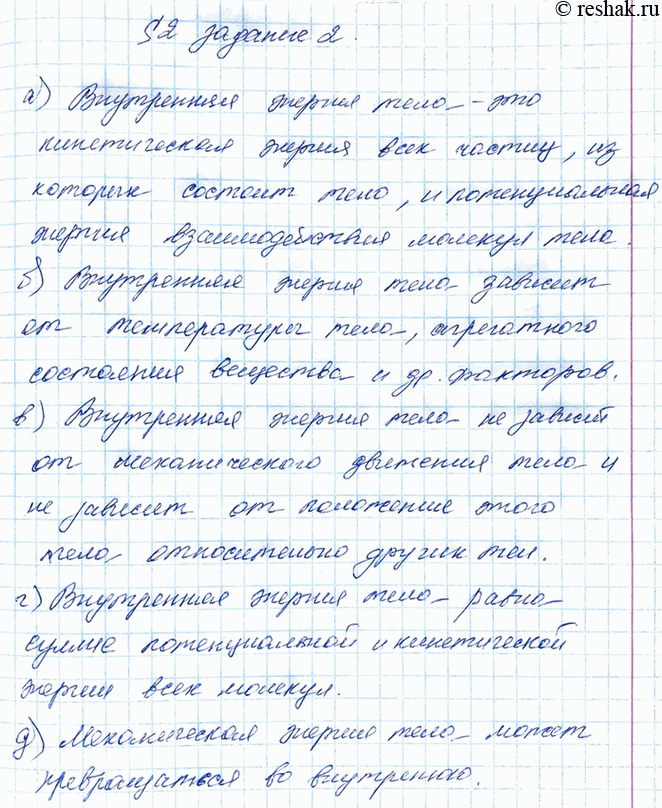 © reshak.ru
§2 задание 2.
а) Внутренняя энергия тела - это
кинетическая энергия всех частиц, из
которых состоит тело, и потенциальная
энергия взаимодействия молекул тела.
б) Внутренняя энергия тела зависит
от температуры тела, агрегатного
состояния вещества и др. факторов.
в) Внутренняя энергия тела не зависит
от механического движения тела и
не зависит от положения этого
тела относительно других тел.
г) Внутренняя энергия тела равна
сумме потенциальной и кинетической
энергии всех молекул.
д) Механическая энергия тела может
превращаться во внутреннюю.